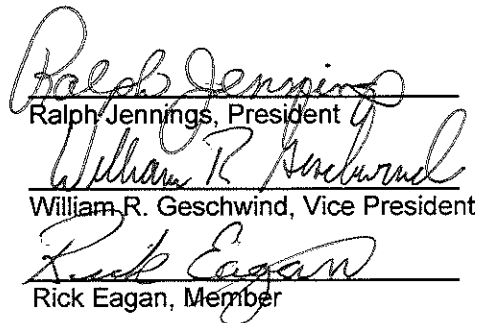 Ralph Jennings
Ralph Jennings, President
William R Geschwind
William R. Geschwind, Vice President
Rick Eagan
Rick Eagan, Member